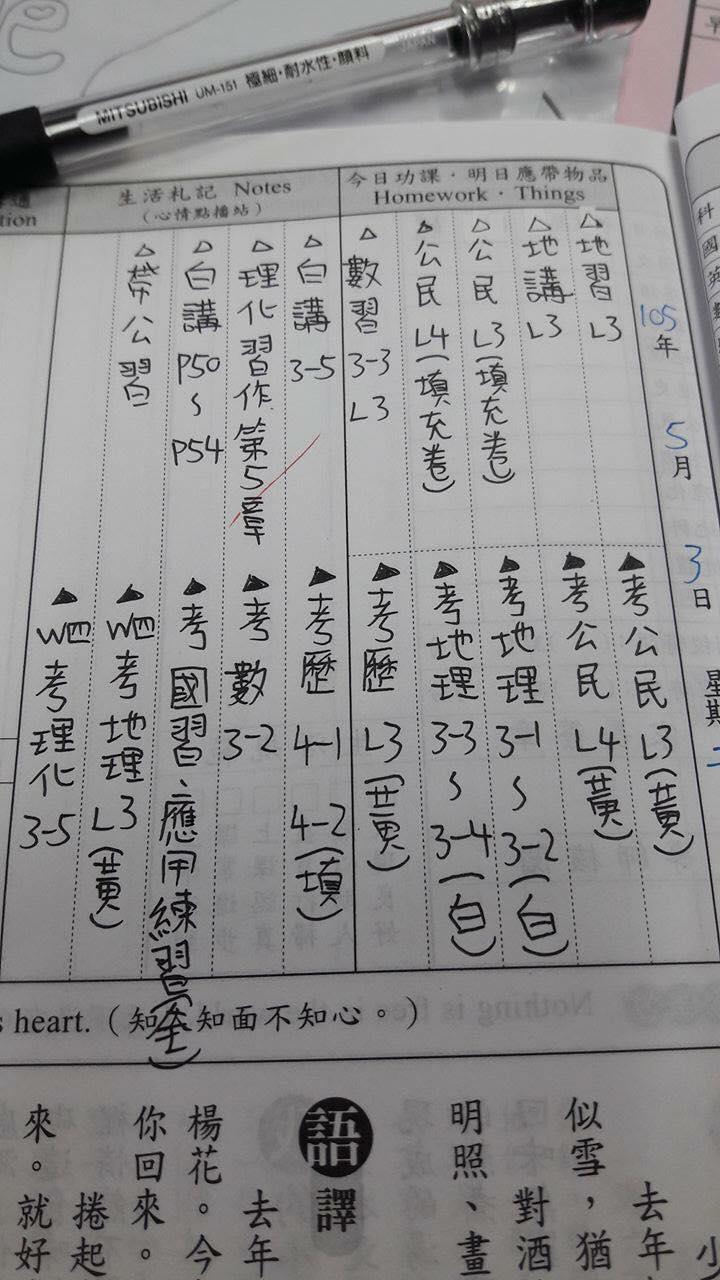 MITSUBISHI UM-151 極細・耐水性・顔料 JAPAN
tion
生活札記 Notes
(心情點播站)
今日功課・明日應帶物品
Homework・Things
105年5月3日星期二
△地習 L3
△地講 L3
△公民 L3(填充卷)
△公民 L4(填充卷)
△數習 3-3 L3
△白講 3-5
△理化習作第5章
△白講 P50~P54
△帶公習
▲考公民 L3(黃)
▲考公民 L4(黃)
▲考地理 3-1~3-2(白)
▲考地理 3-3~3-4(白)
▲考歷 L3(黃)
▲考歷 4-1 4-2(填)
▲考數 3-2
▲考國習、應用練習(全)
▲W四考地理 L3(黃)
▲W四考理化 3-5
科
國
英
s heart.(知人知面不知心。)
去年
似雪,猶
對酒
明照、畫
語譯
去年
楊花。今
你回來。
捲起
來。就好